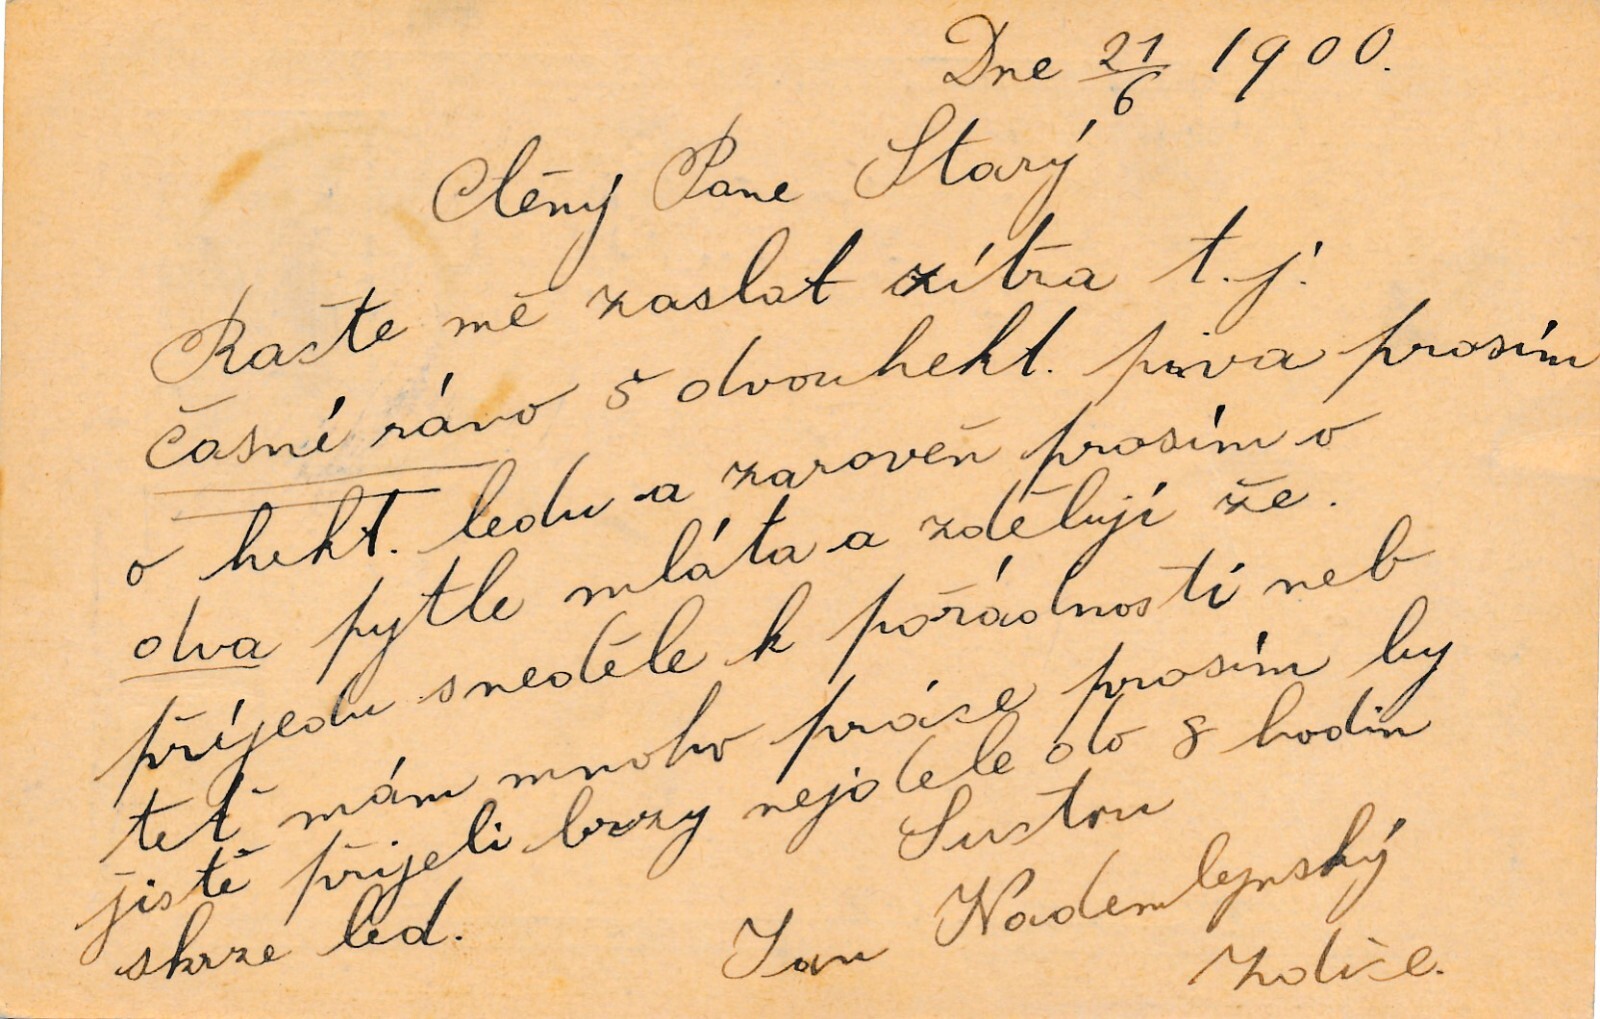 Dne 21/6 1900.
Ctěný Pane Starý
Račte mě zaslat zítra t. j.
časné ráno 5 dvouhekt. piva prosím
o hekt. ledu a zaroveň prosím o
dva pytle mláta a zdělují že.
příjedu sneděle k pořádnosti neb
teť mám mnoho práce prosím by
jistě přijeli brzy nejdele do 8 hodin
skrze led.
Suctou
Jan Nademlejnský
Zdice.